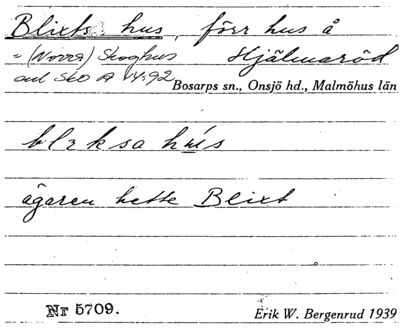 Blixts hus, förr hus å
= (Norra) Skoghus Hjälmaröd
enl Sko A 4:92 Bosarps sn., Onsjö hd., Malmöhus län
blɪksa hús
ägaren hette Blixt
Nr 5709. Erik W. Bergenrud 1939